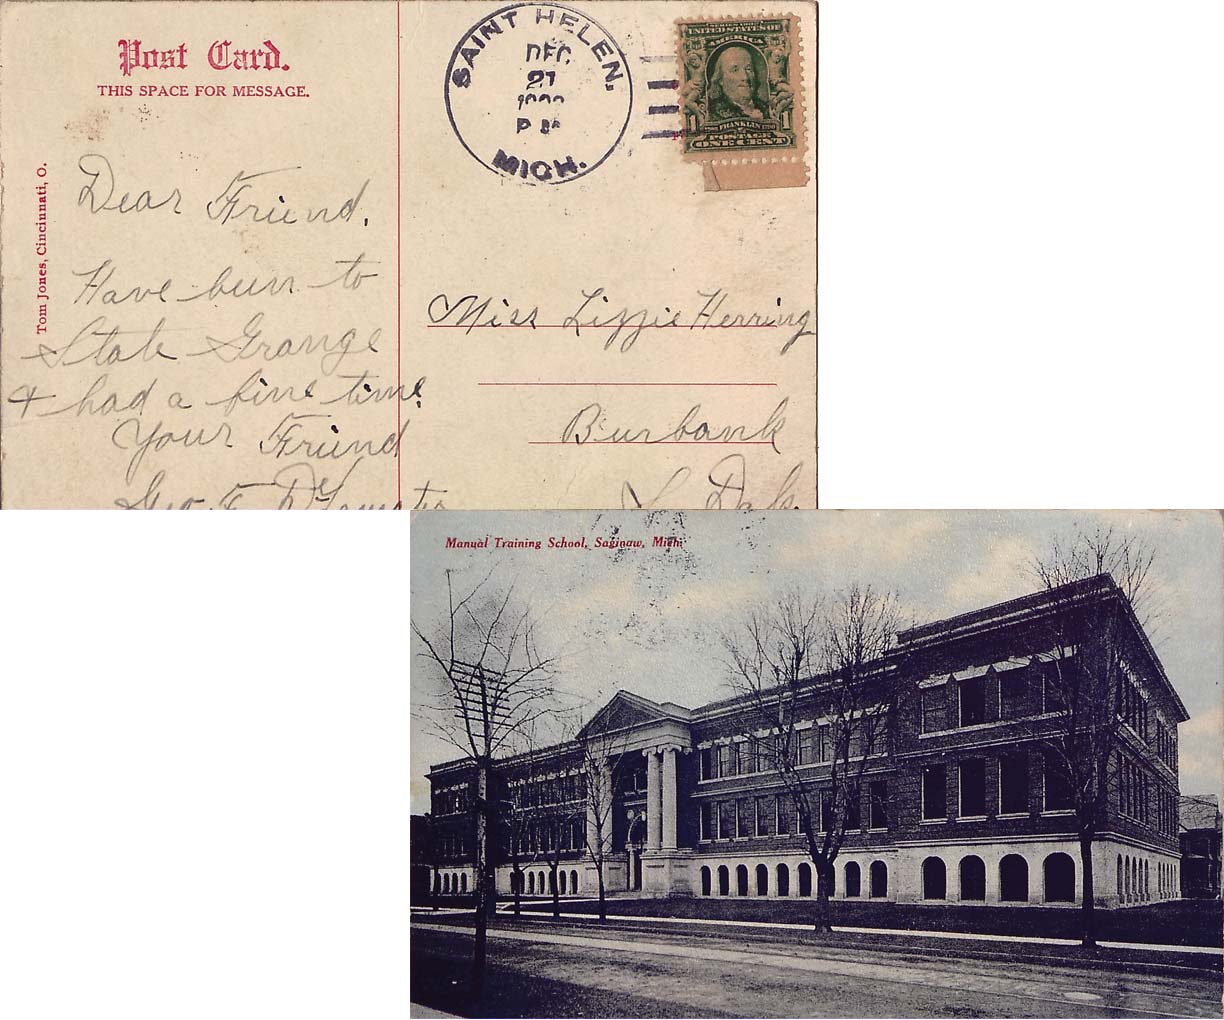 Post Card.
THIS SPACE FOR MESSAGE.
Tom Jones, Cincinnati, O.
SAINT HELEN.
DEC
21
P M
MICH.
SERIES 1902
UNITED STATES OF
AMERICA
FRANKLIN
1 1
POSTAGE
ONE CENT
Dear Friend,
Have been to
State Grange
+ had a fine time.
Your Friend
Geo. F.
Miss Lizzie Herring
Burbank
S. Dak.
Manual Training School, Saginaw, Mich.